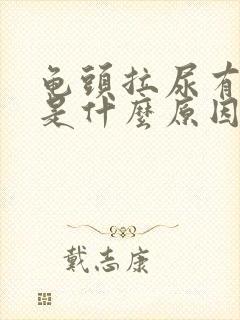 龟頭拉尿有
是什麼原因
戴志康